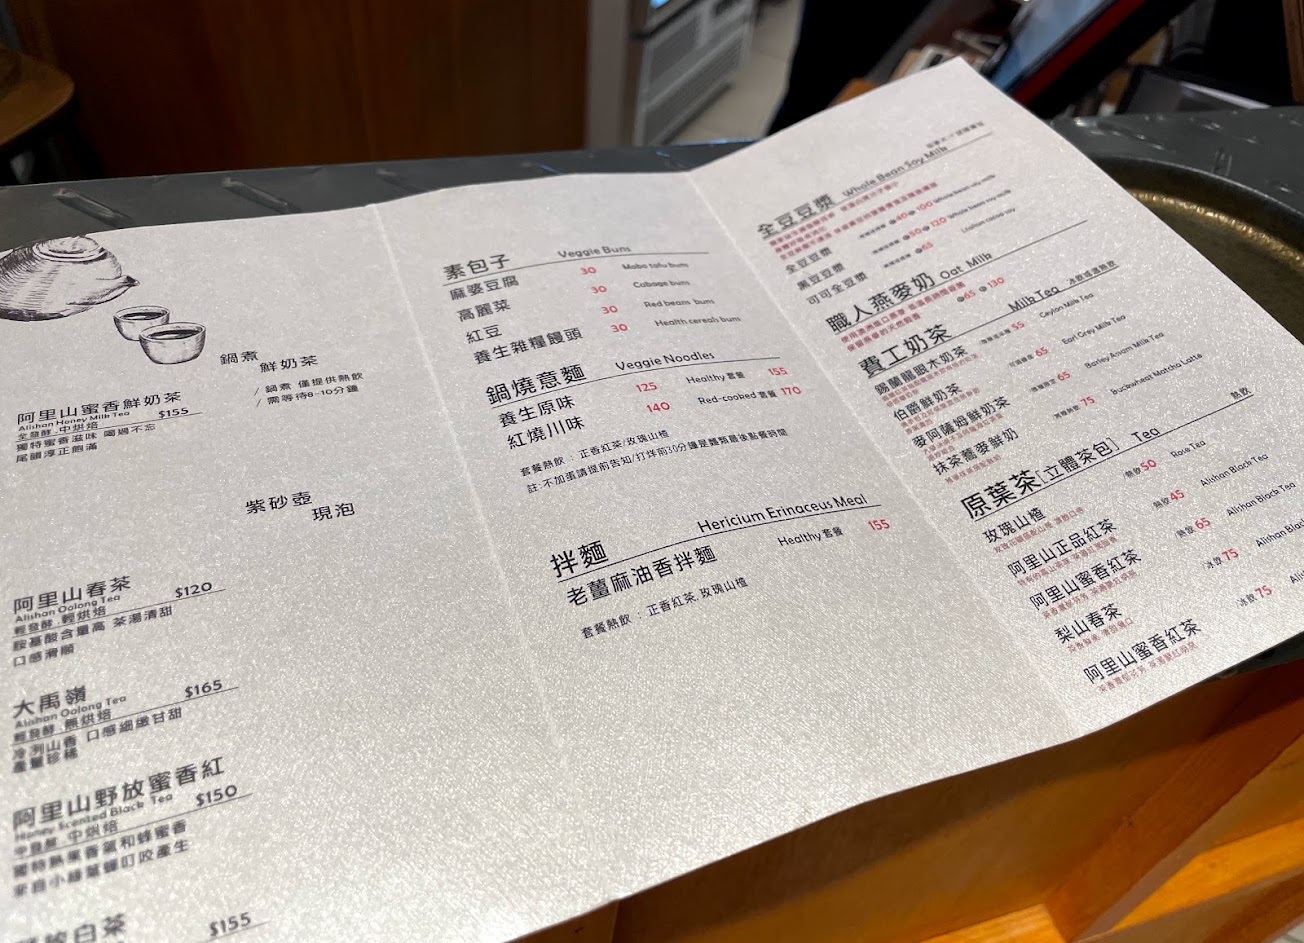 鍋煮
鮮奶茶
/ 鍋煮 僅提供熱飲
/ 需等待8-10分鐘
阿里山蜜香鮮奶茶 $155
Alishan Honey Milk Tea
全發酵.中烘焙
獨特蜜香滋味 喝過不忘
尾韻淳正飽滿
紫砂壺
現泡
阿里山春茶 $120
Alishan Oolong Tea
輕發酵.輕烘焙
胺基酸含量高 茶湯清甜
口感滑順
大禹嶺 $165
Alishan Oolong Tea
輕發酵.無烘焙
冷冽山香 口感細緻甘甜
產量珍稀
阿里山野放蜜香紅 $150
Honey Scented Black Tea
中發酵.中烘焙
獨特熟果香氣和蜂蜜香
來自小綠葉蟬叮咬產生
白茶 $155
素包子 Veggie Buns
麻婆豆腐 30 Mabo tofu buns
高麗菜 30 Cabage buns
紅豆 30 Red beans buns
養生雜糧饅頭 30 Health cereals buns
鍋燒意麵 Veggie Noodles
養生原味 125 Healthy 套餐 155
紅燒川味 140 Red-cooked 套餐 170
套餐熱飲 : 正香紅茶/玫瑰山楂
註:不加蛋請提前告知/打烊前30分鐘是麵類最後點餐時間
拌麵 Hericium Erinaceus Meal
老薑麻油香拌麵 Healthy 套餐 155
套餐熱飲 : 正香紅茶, 玫瑰山楂
全豆豆漿 Whole Bean Soy Milk
全豆豆漿 40 100 Whole bean soy milk
黑豆豆漿 50 120 Whole bean soy milk
可可全豆漿 65
職人燕麥奶 Oat Milk
65 130
費工奶茶 Milk Tea 冰飲或溫熱飲
錫蘭龍眼木奶茶 55 Ceylon Milk Tea
伯爵鮮奶茶 65 Earl Grey Milk Tea
麥阿薩姆鮮奶茶 65 Barley Assam Milk Tea
抹茶蕎麥鮮奶 75 Buckwheat Matcha Latte
原葉茶[立體茶包] Tea 熱飲
玫瑰山楂 熱飲 50 Rose Tea
阿里山正品紅茶 熱飲 45 Alishan Black Tea
阿里山蜜香紅茶 熱飲 65 Alishan Black Tea
梨山春茶 冰飲 75 Alishan Black
阿里山蜜香紅茶 冰飲 75